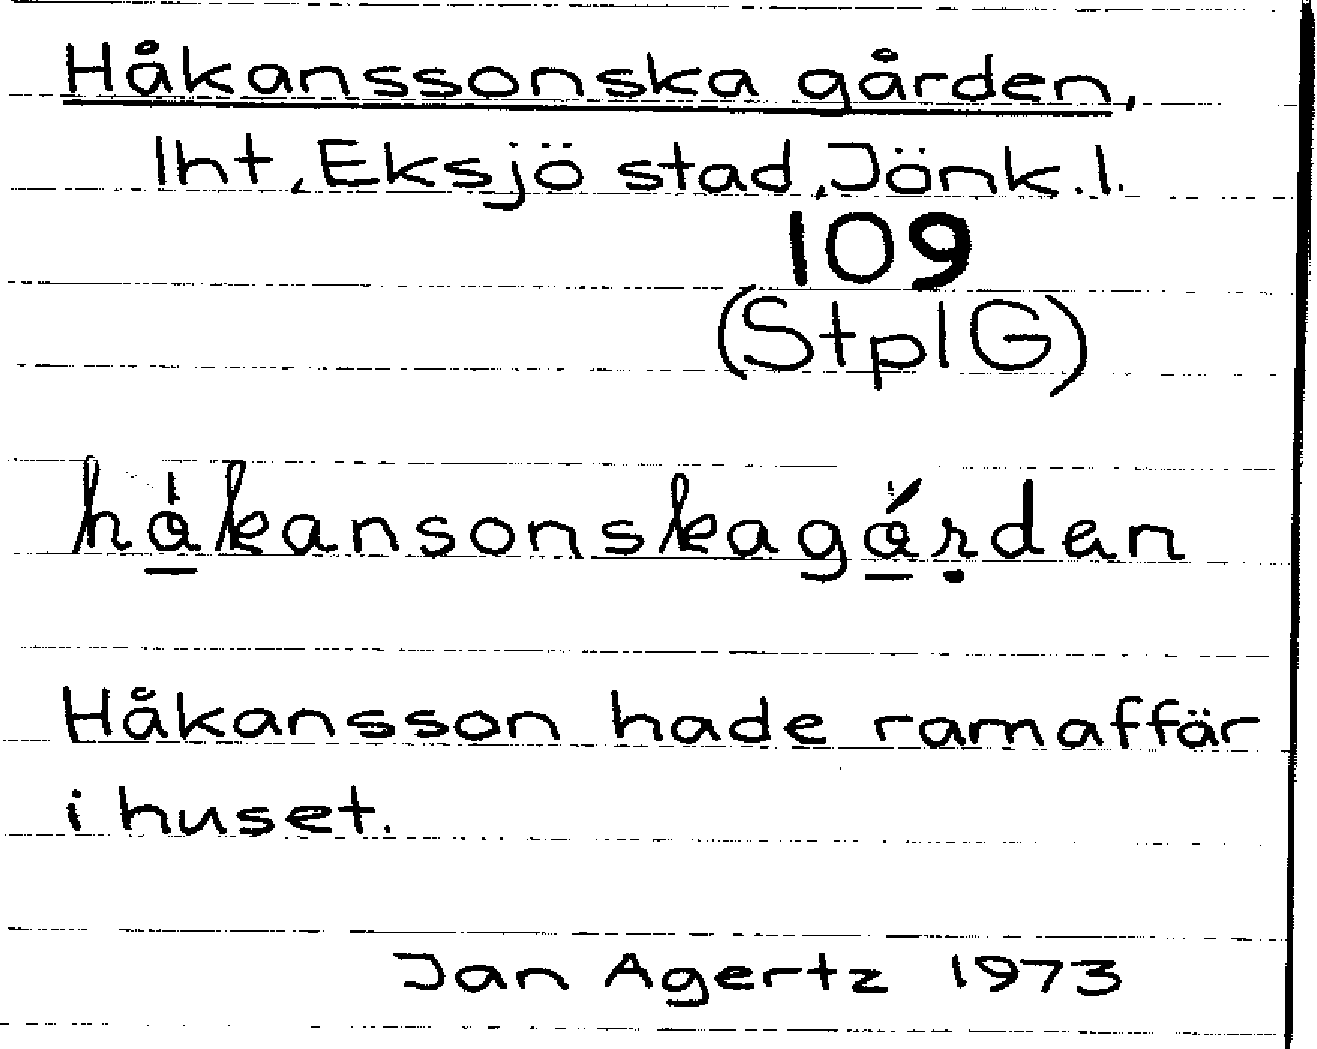 Håkanssonska gården,
lht, Eksjö stad, Jönk. l.
109
(StplG)
hå̀kansonskagǻṛden
Håkansson hade ramaffär
i huset.
Jan Agertz 1973